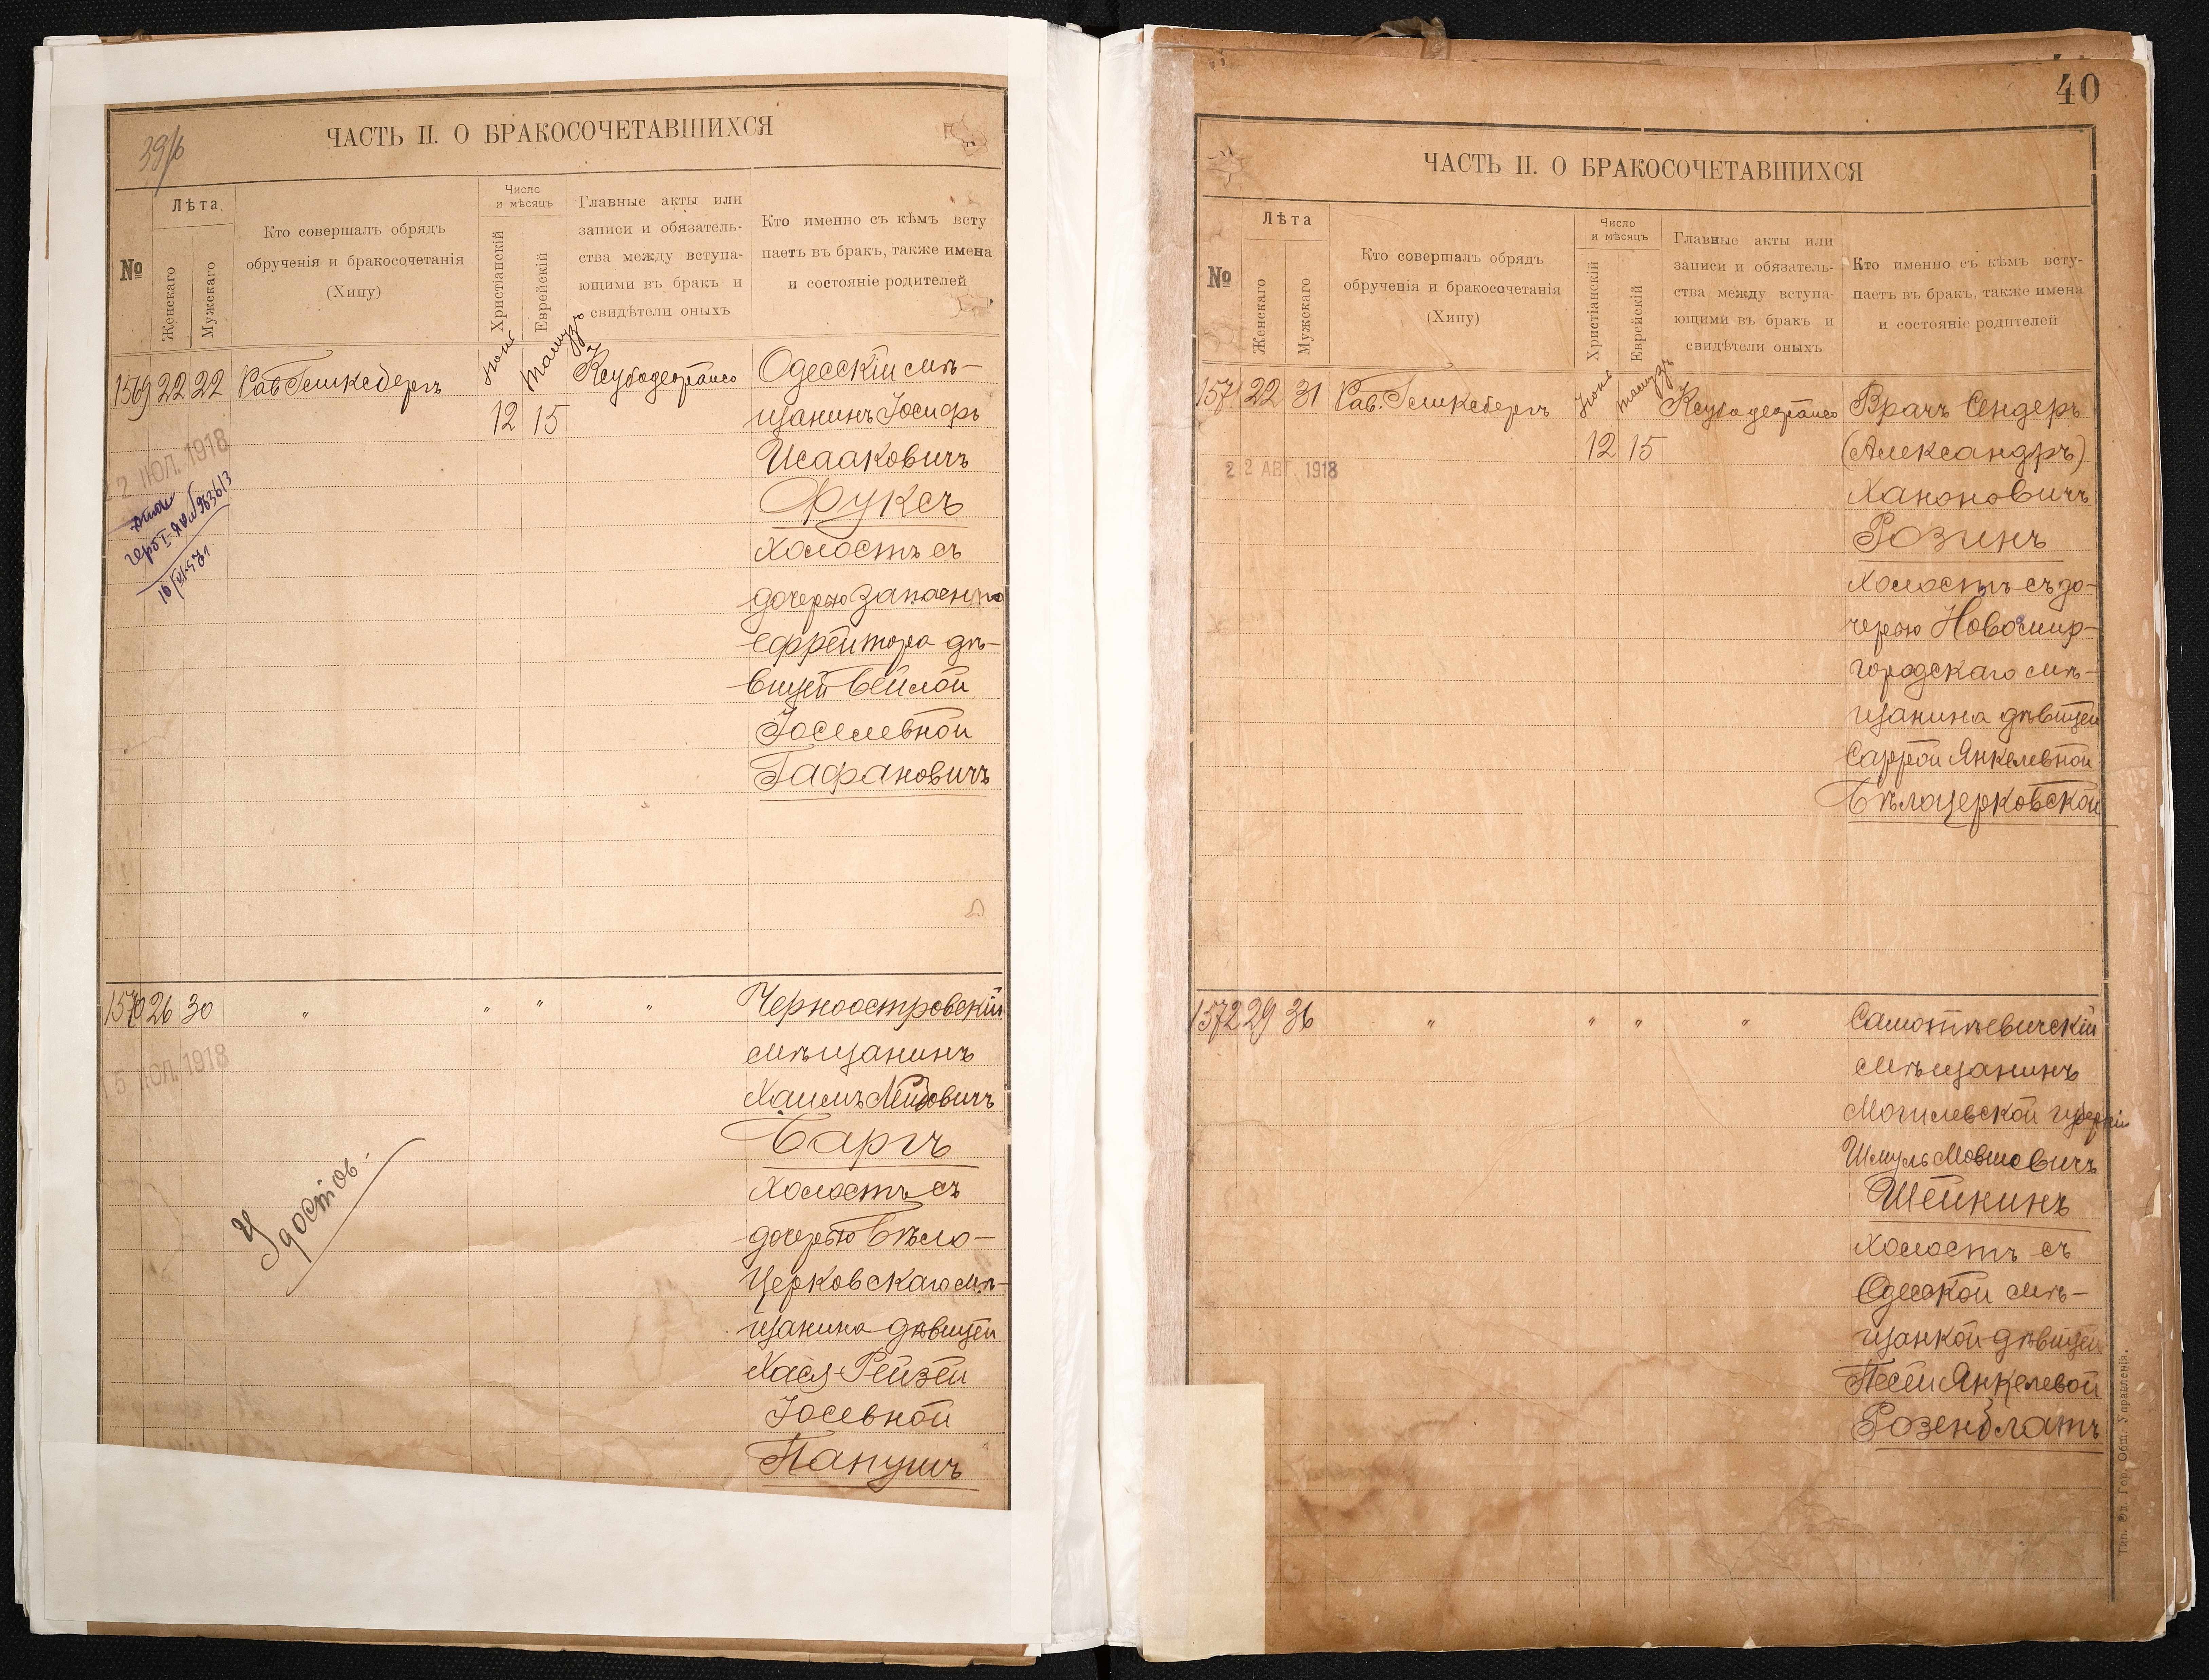 39/б
ЧАСТЬ II. О БРАКОСОЧЕТАВШИХСЯ
№
Лѣта
Женскаго
Мужскаго
Кто совершалъ обрядъ
обрученія и бракосочетанія
(Хипу)
Число
и мѣсяцъ
Христіанскій
Еврейскій
Главные акты или
записи и обязатель-
ства между вступа-
ющими въ бракъ и
свидѣтели оныхъ
Кто именно съ кѣмъ всту
паетъ въ бракъ, также имена
и состояніе родителей
1569 22 22 Рав Гликсбергъ
Іюнь
Тамузъ
12 15
Одесскій мѣ-
щанинъ Іосифъ
Исааковичъ
Фуксъ
холостъ съ
дочерью запаснаго
ефрейтора дѣ-
вицей Бейлой
Іоселевной
Гафановичъ
2 ІЮЛ. 1918
1570 26 30 " " " "
Черноостровскій
мѣщанинъ
Хаимъ Лейбовичъ
Баргъ
холостъ съ
дочерью Бѣло-
церковскаго мѣ-
щанина дѣвицей
Хася-Рейзей
Іосевной
Папушъ
5 ІЮЛ. 1918
Удостов.
40
ЧАСТЬ II. О БРАКОСОЧЕТАВШИХСЯ
№
Лѣта
Женскаго
Мужскаго
Кто совершалъ обрядъ
обрученія и бракосочетанія
(Хипу)
Число
и мѣсяцъ
Христіанскій
Еврейскій
Главные акты или
записи и обязатель-
ства между вступа-
ющими въ бракъ и
свидѣтели оныхъ
Кто именно съ кѣмъ всту-
паетъ въ бракъ, также имена
и состояніе родителей
1571 22 31 Рав. Гликсбергъ
Іюнь
Тамузъ
12 15
Врачъ Сендеръ
(Александръ)
Ханоновичъ
Розинъ
холостъ съ до-
черью Новомир-
городскаго мѣ-
щанина дѣвицей
Саррой Янкелевной
Бѣлоцерковской
22 АВГ. 1918
1572 29 36 " " " "
Самотѣевичскій
мѣщанинъ
Могилевской губерніи
Шмуль Мовшовичъ
Шейкинъ
холостъ съ
Одесской мѣ-
щанкой дѣвицей
Песей Янкелевой
Розенблатъ
Тип. Од. Гор. Общ. Управленія.